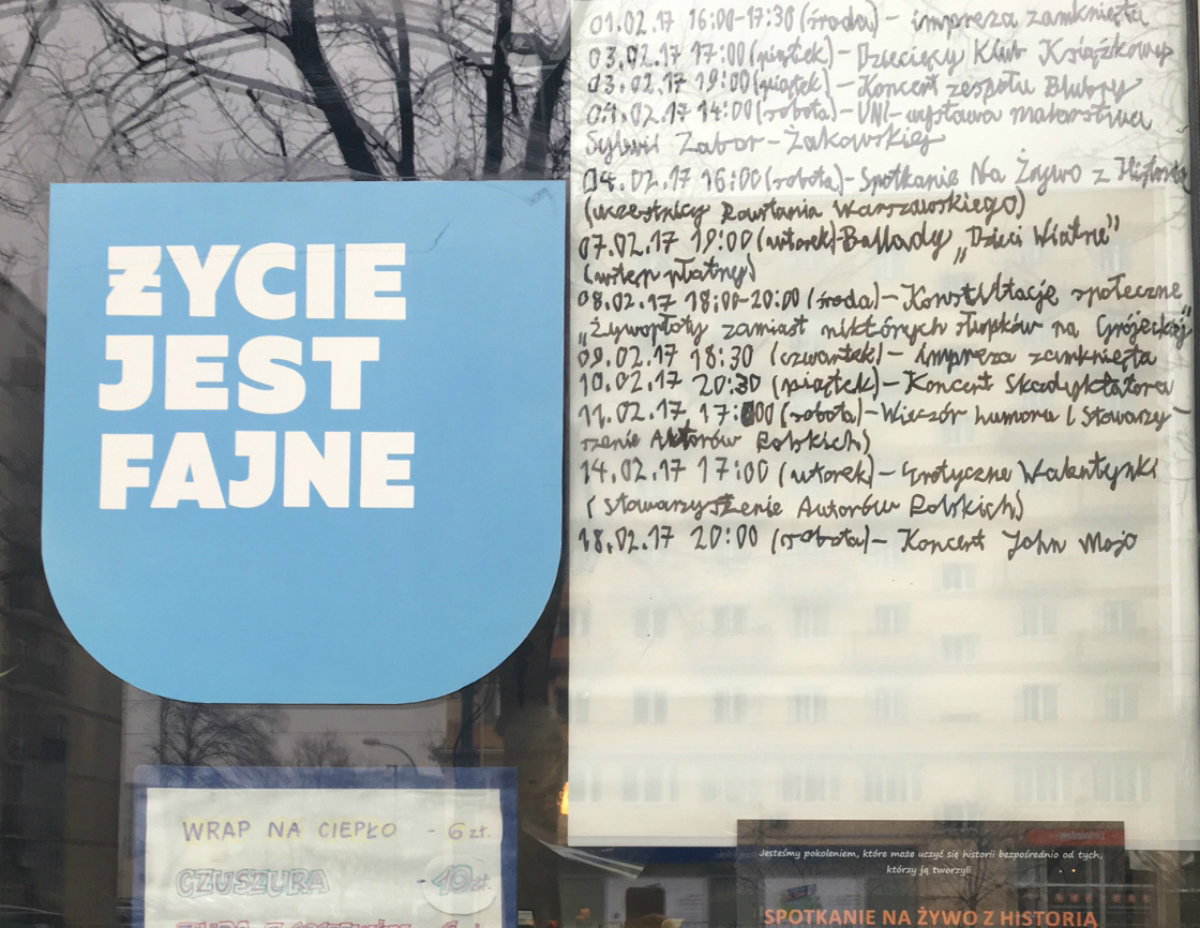 ŻYCIE
JEST
FAJNE
01.02.17 16:00-17:30 (środa) - impreza zamknięta
03.02.17 17:00 (piątek) - Dziecięcy Klub Książkowy
03.02.17 19:00 (piątek) - Koncert zespołu Blubry
04.02.17 14:00 (sobota) - UNI - wystawa malarstwa
Sylwii Zabor-Żakowskiej
04.02.17 16:00 (sobota) - Spotkanie Na Żywo z Historią
(uczestnicy Powstania Warszawskiego)
07.02.17 19:00 (wtorek) - Ballady „Dzieci Wiatru"
(wstęp płatny)
08.02.17 18:00-20:00 (środa) - Konsultacje społeczne
„Żywopłoty zamiast niktórych słupków na Grójeckiej"
09.02.17 18:30 (czwartek) - impreza zamknięta
10.02.17 20:30 (piątek) - Koncert Skadyktatora
11.02.17 17:00 (sobota) - Wieczór humoru (Stowarzy-
szenie Autorów Polskich)
14.02.17 17:00 (wtorek) - Erotyczne Walentynki
(stowarzyszenie Autorów Polskich)
18.02.17 20:00 (sobota) - Koncert John Mojo
WRAP NA CIEPŁO - 6 zł.
CZUSZURA - 10 zł.
Jesteśmy pokoleniem, które może uczyć się historii bezpośrednio od tych,
którzy ją tworzyli
SPOTKANIE NA ŻYWO Z HISTORIĄ